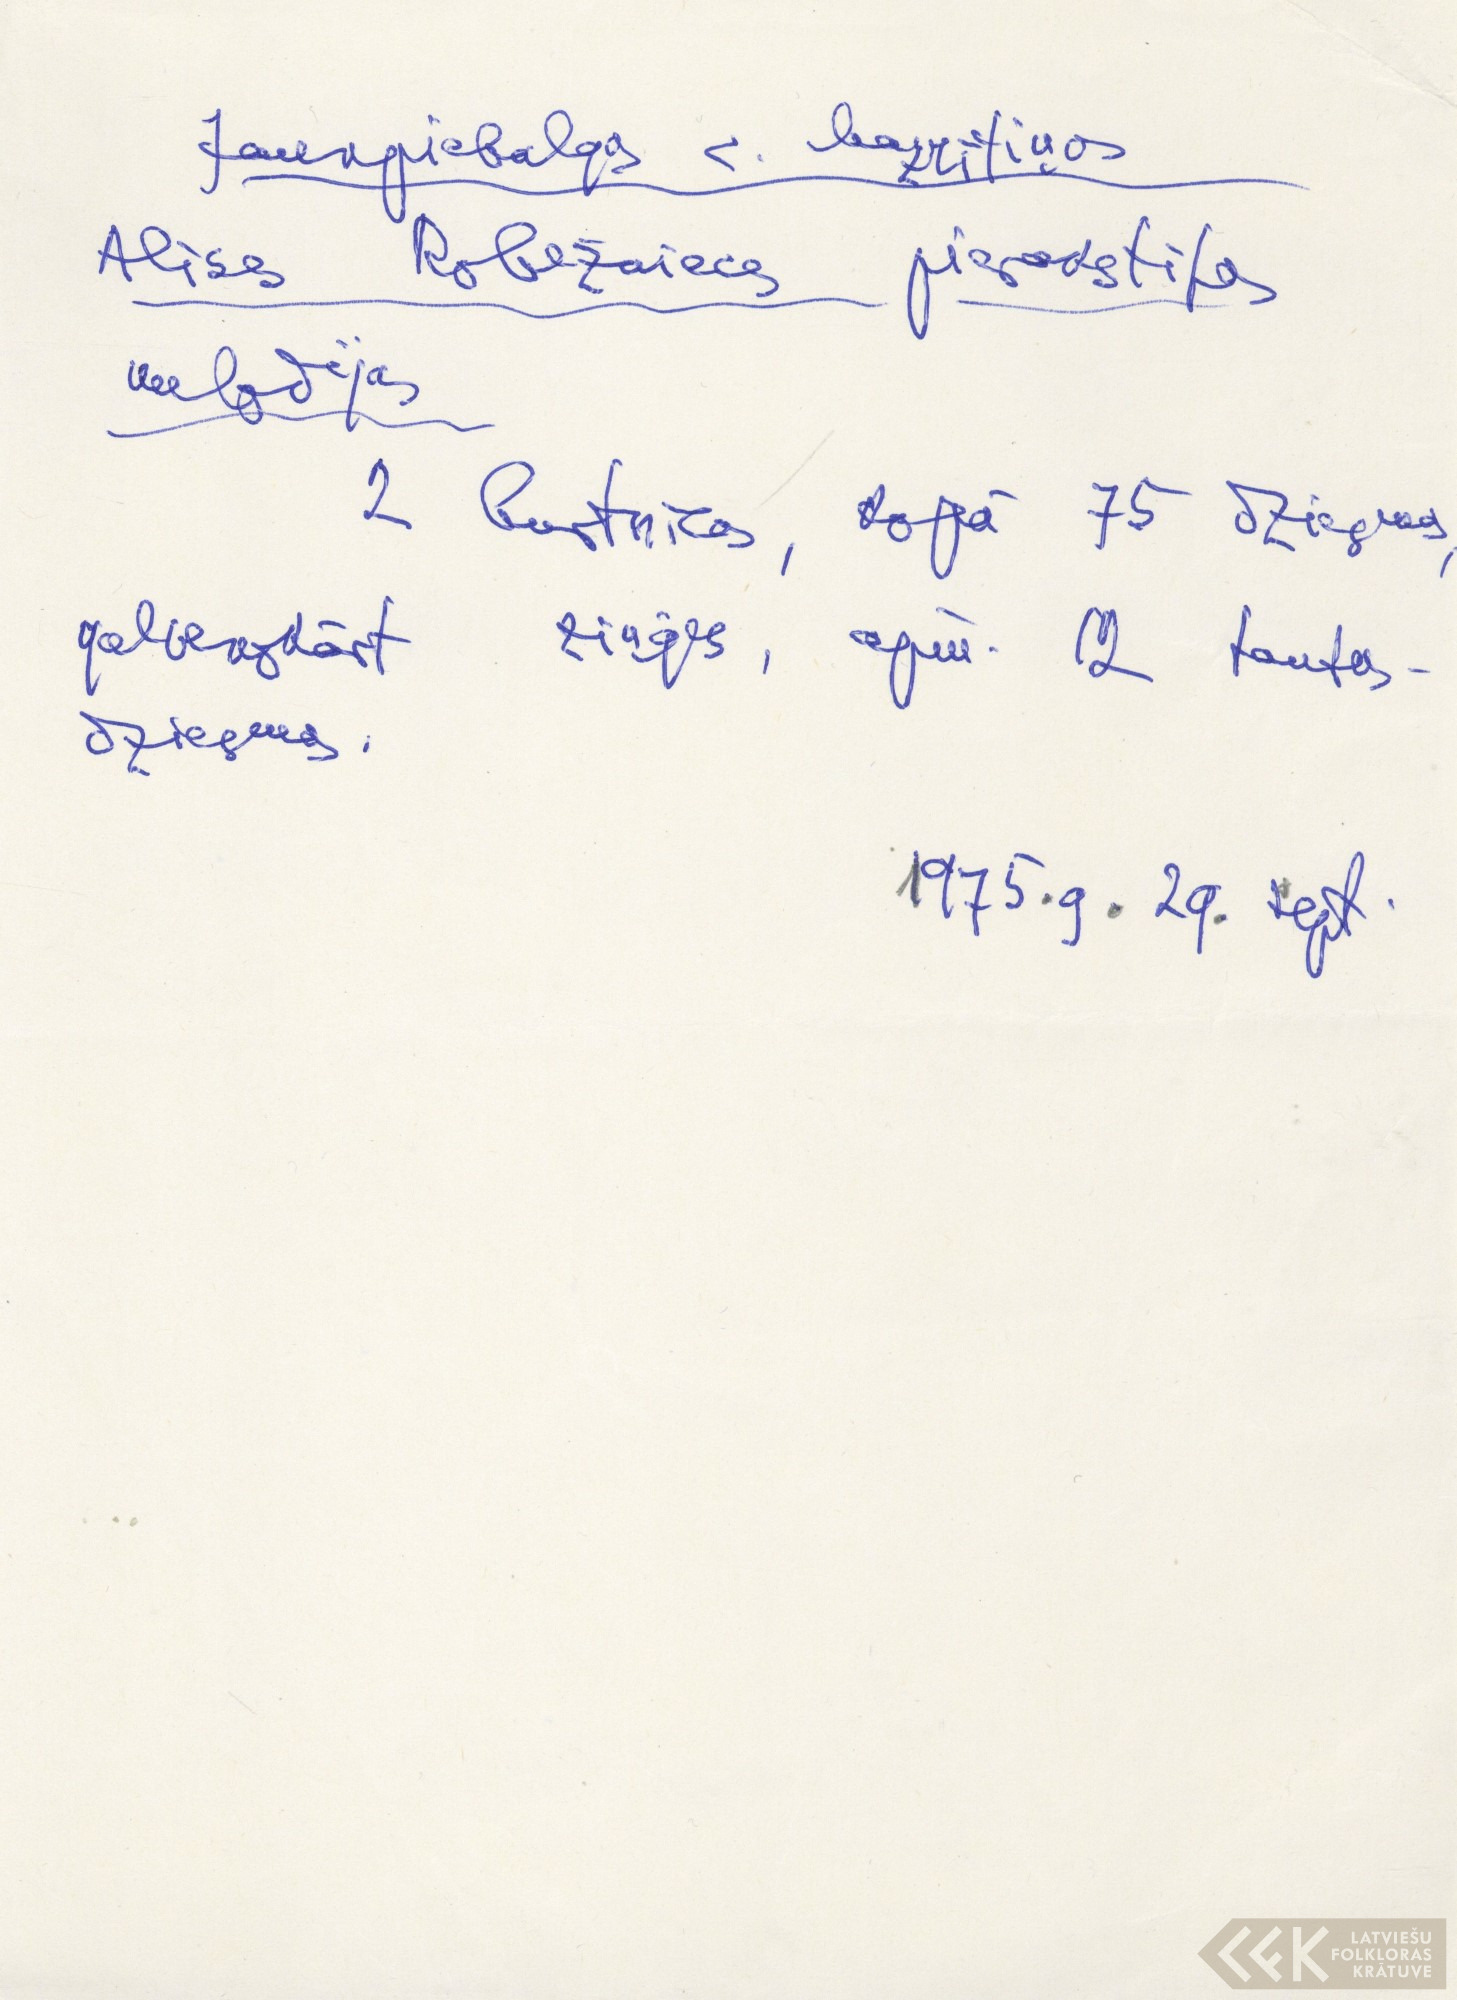 Jaunpiebalgas c.
Alises Robežnieces pierakstītas
melodijas
2 burtnīcas, kopā 75 dziesmas,
galvenokārt ziņģes, apm. 12 tautas-
dziesmas.
1975.g. 29. sept.
LATVIEŠU
FOLKLORAS
KRĀTUVE